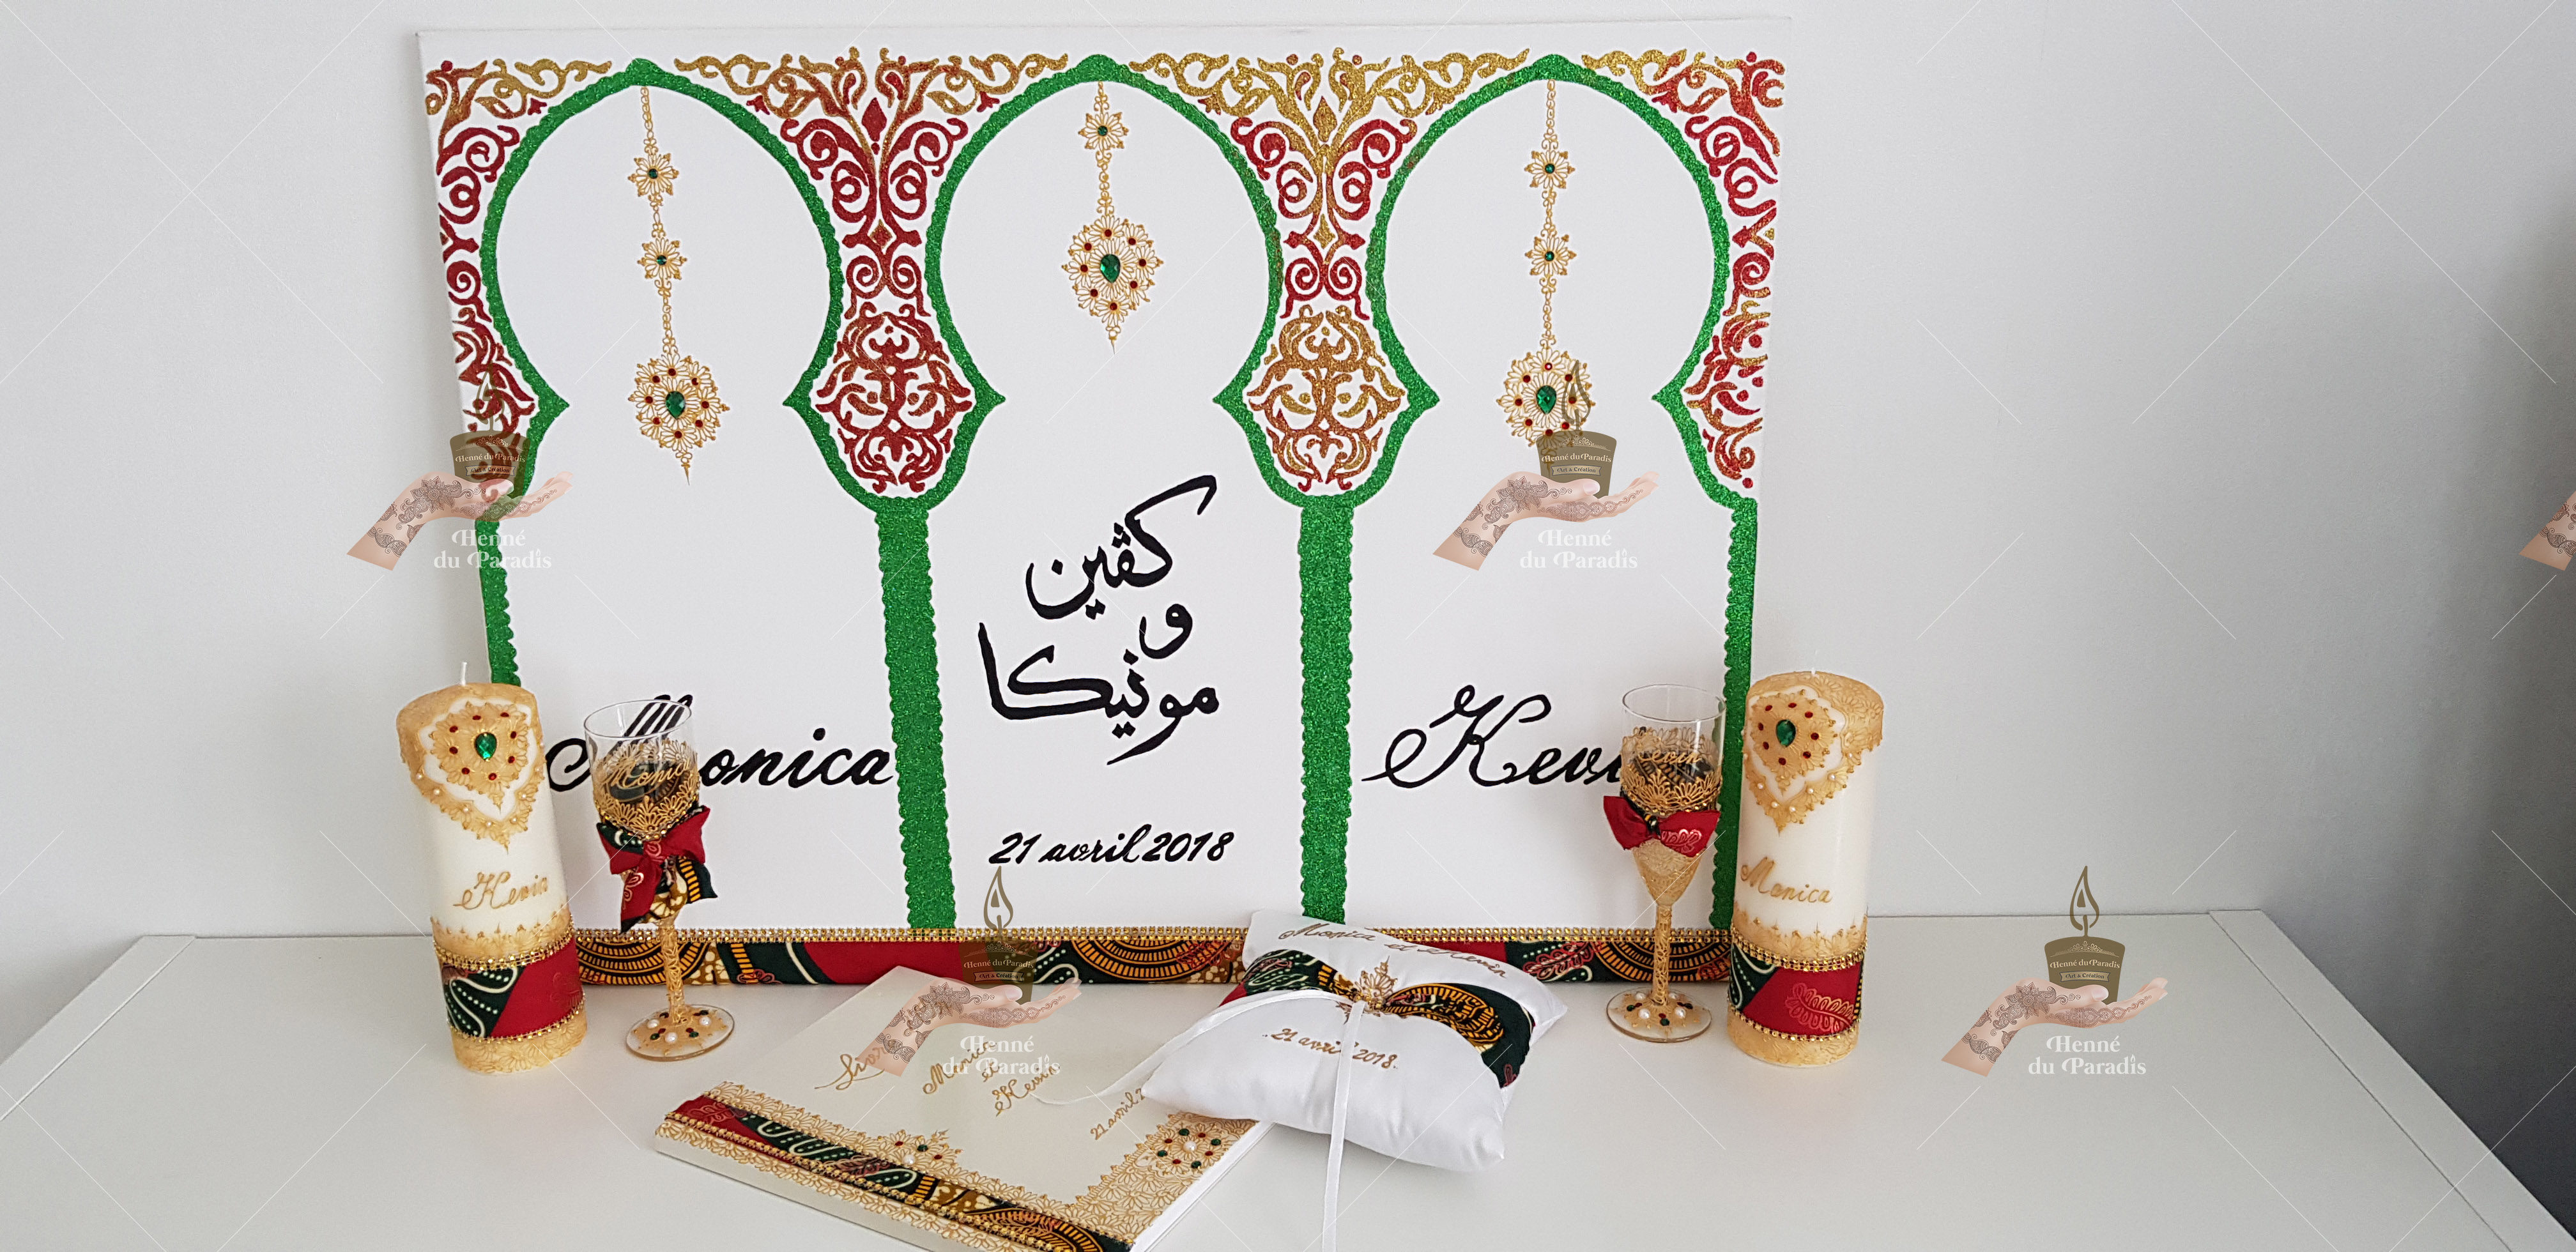 كڤين
و
مونيكا
Monica
Kevin
21 avril 2018
Kevin
Monica
Monica
Monica et Kevin
21 avril 2018.
Monica
et
Kevin
21 avril 2
Henné du Paradis
Art & Création
Henné
du Paradis
Henné du Paradis
Art & Création
Henné
du Paradis
Henné du Paradis
Art & Création
Henné
du Paradis
Henné du Paradis
Art & Création
Henné
du Paradis